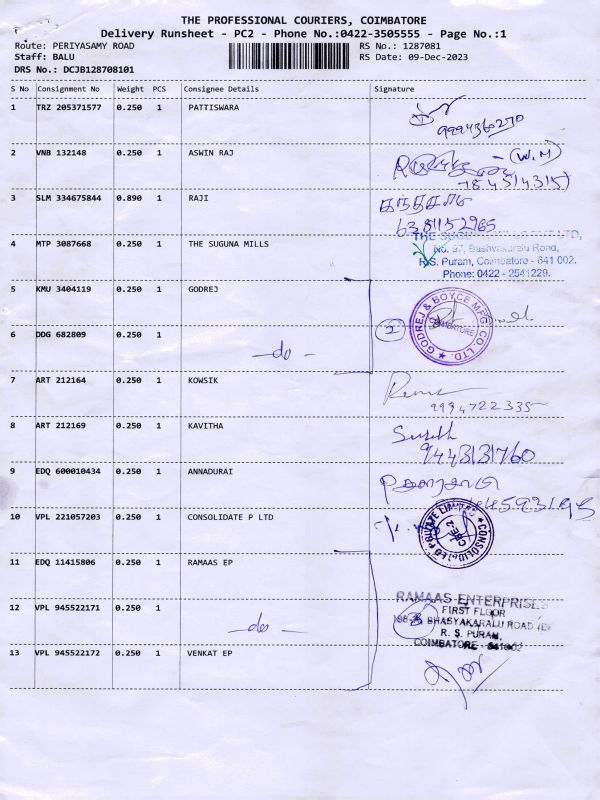 THE PROFESSIONAL COURIERS, COIMBATORE
Delivery Runsheet - PC2 - Phone No.:0422-3505555 - Page No.:1
Route: PERIYASAMY ROAD RS No.: 1287081
Staff: BALU RS Date: 09-Dec-2023
DRS No.: DCJB128708101
S No Consignment No Weight PCS Consignee Details Signature
1 TRZ 205371577 0.250 1 PATTISWARA
9994360270
2 VNB 132148 0.250 1 ASWIN RAJ (W.M)
3 SLM 334675844 0.890 1 RAJI
6381152965
4 MTP 3087668 0.250 1 THE SUGUNA MILLS
R.S. Puram, Coimbatore - 641 002.
Phone: 0422 - 2541229.
5 KMU 3404119 0.250 1 GODREJ
GODREJ & BOYCE MFG. CO. LTD.
COIMBATORE
2
6 DDG 682809 0.250 1
-do-
7 ART 212164 0.250 1 KOWSIK
9994722335
8 ART 212169 0.250 1 KAVITHA
9443131760
9 EDQ 600010434 0.250 1 ANNADURAI
10 VPL 221057203 0.250 1 CONSOLIDATE P LTD
CONSOLIDATED PRIVATE LIMITED
CBE-2
11 EDQ 11415806 0.250 1 RAMAAS EP
RAMAAS ENTERPRISES
FIRST FLOOR
12 VPL 945522171 0.250 1
BHASYAKARALU ROAD
-do-
R. S. PURAM,
COIMBATORE - 641002
13 VPL 945522172 0.250 1 VENKAT EP